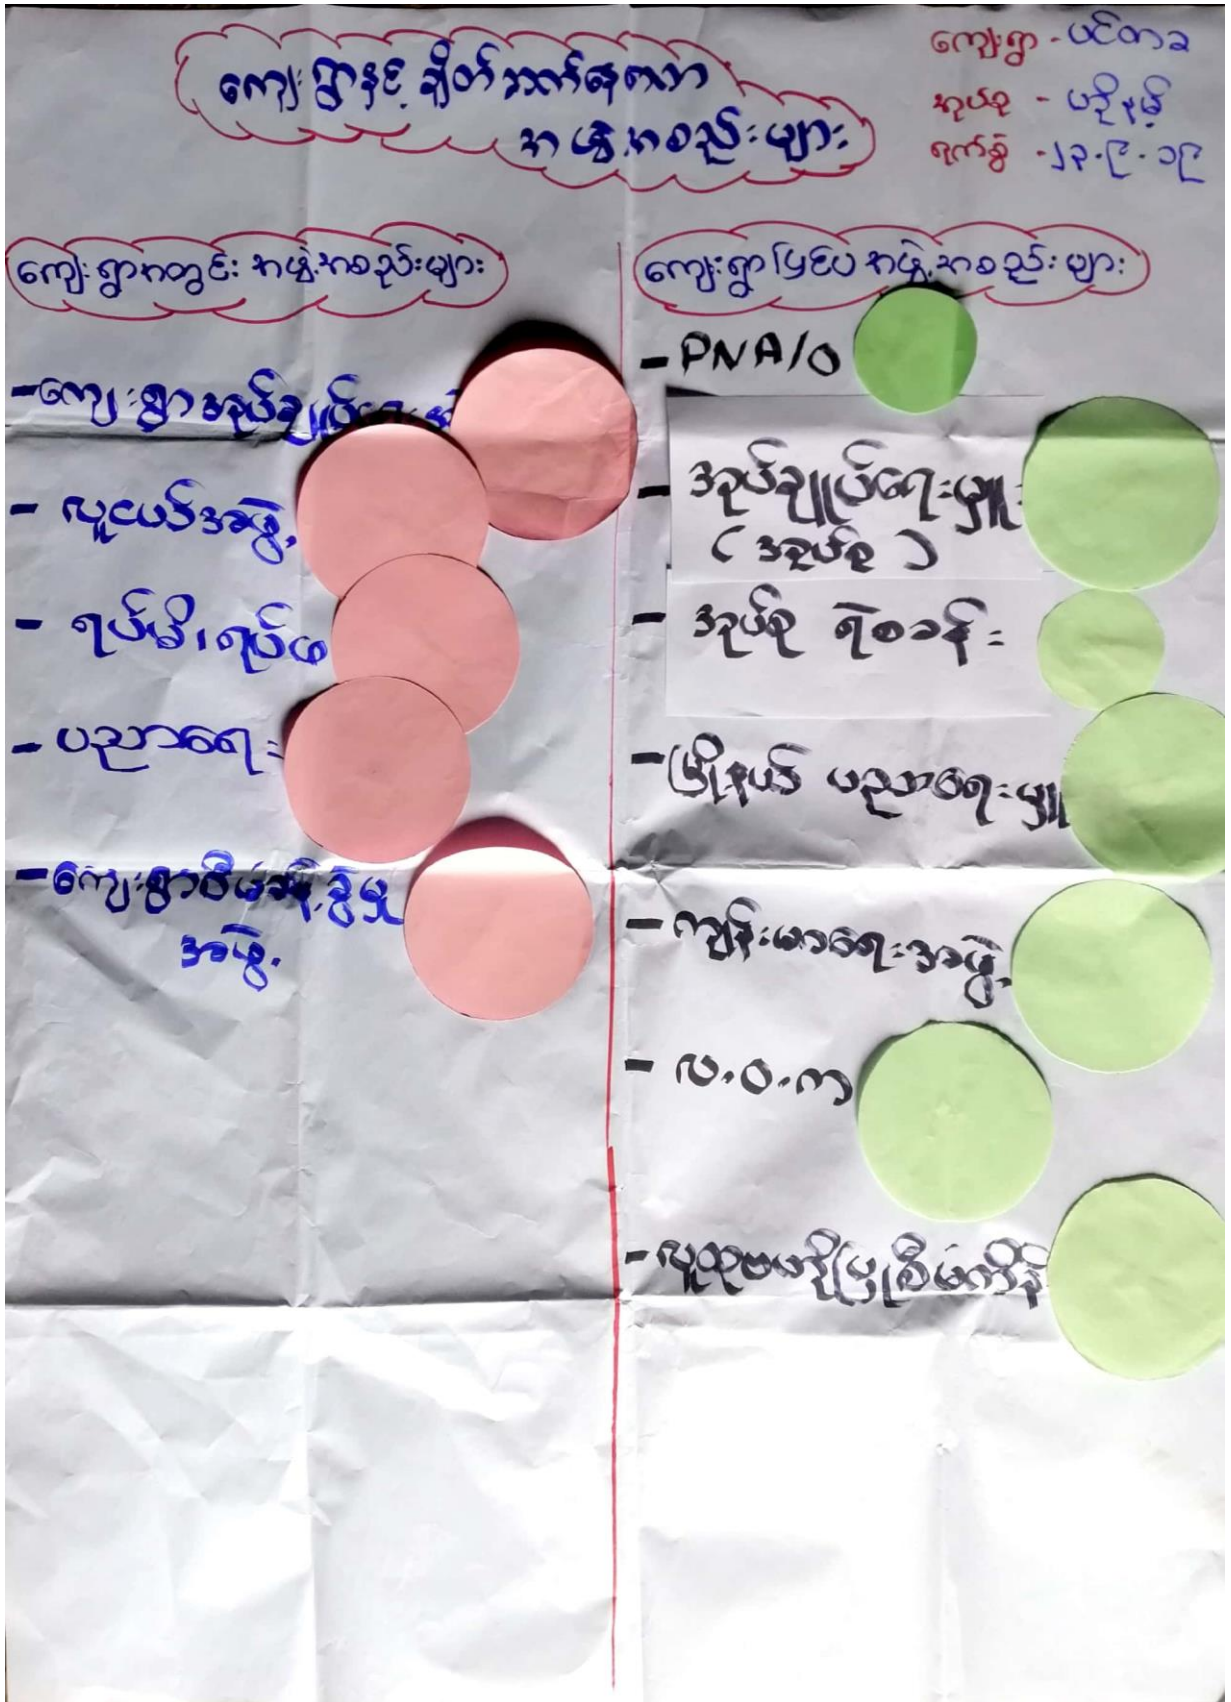 ကျေးရွာနှင့် ချိတ်ဆက်နေသော
အဖွဲ့အစည်းများ
ကျေးရွာ - ပင်တခ
အုပ်စု - ပဒိုနမ့်
ရက်စွဲ - ၂၃.၉.၁၉
ကျေးရွာတွင်း အဖွဲ့အစည်းများ
- ကျေးရွာအုပ်ချုပ်ရေး
- လူငယ်အဖွဲ့
- ရပ်မိ၊ ရပ်ဖ
- ပညာရေး
- ကျေးရွာစီမံခန့်ခွဲမှု
အဖွဲ့
ကျေးရွာပြင်ပ အဖွဲ့အစည်းများ
- PNA/O
- အုပ်ချုပ်ရေးမှူး
( အုပ်စု )
- အုပ်စု ရဲစခန်း
- မြို့နယ် ပညာရေးမှူး
- ကျန်းမာရေးအဖွဲ့
- လ.ဝ.က
- လူထုဗဟိုပြုစီမံကိန်း